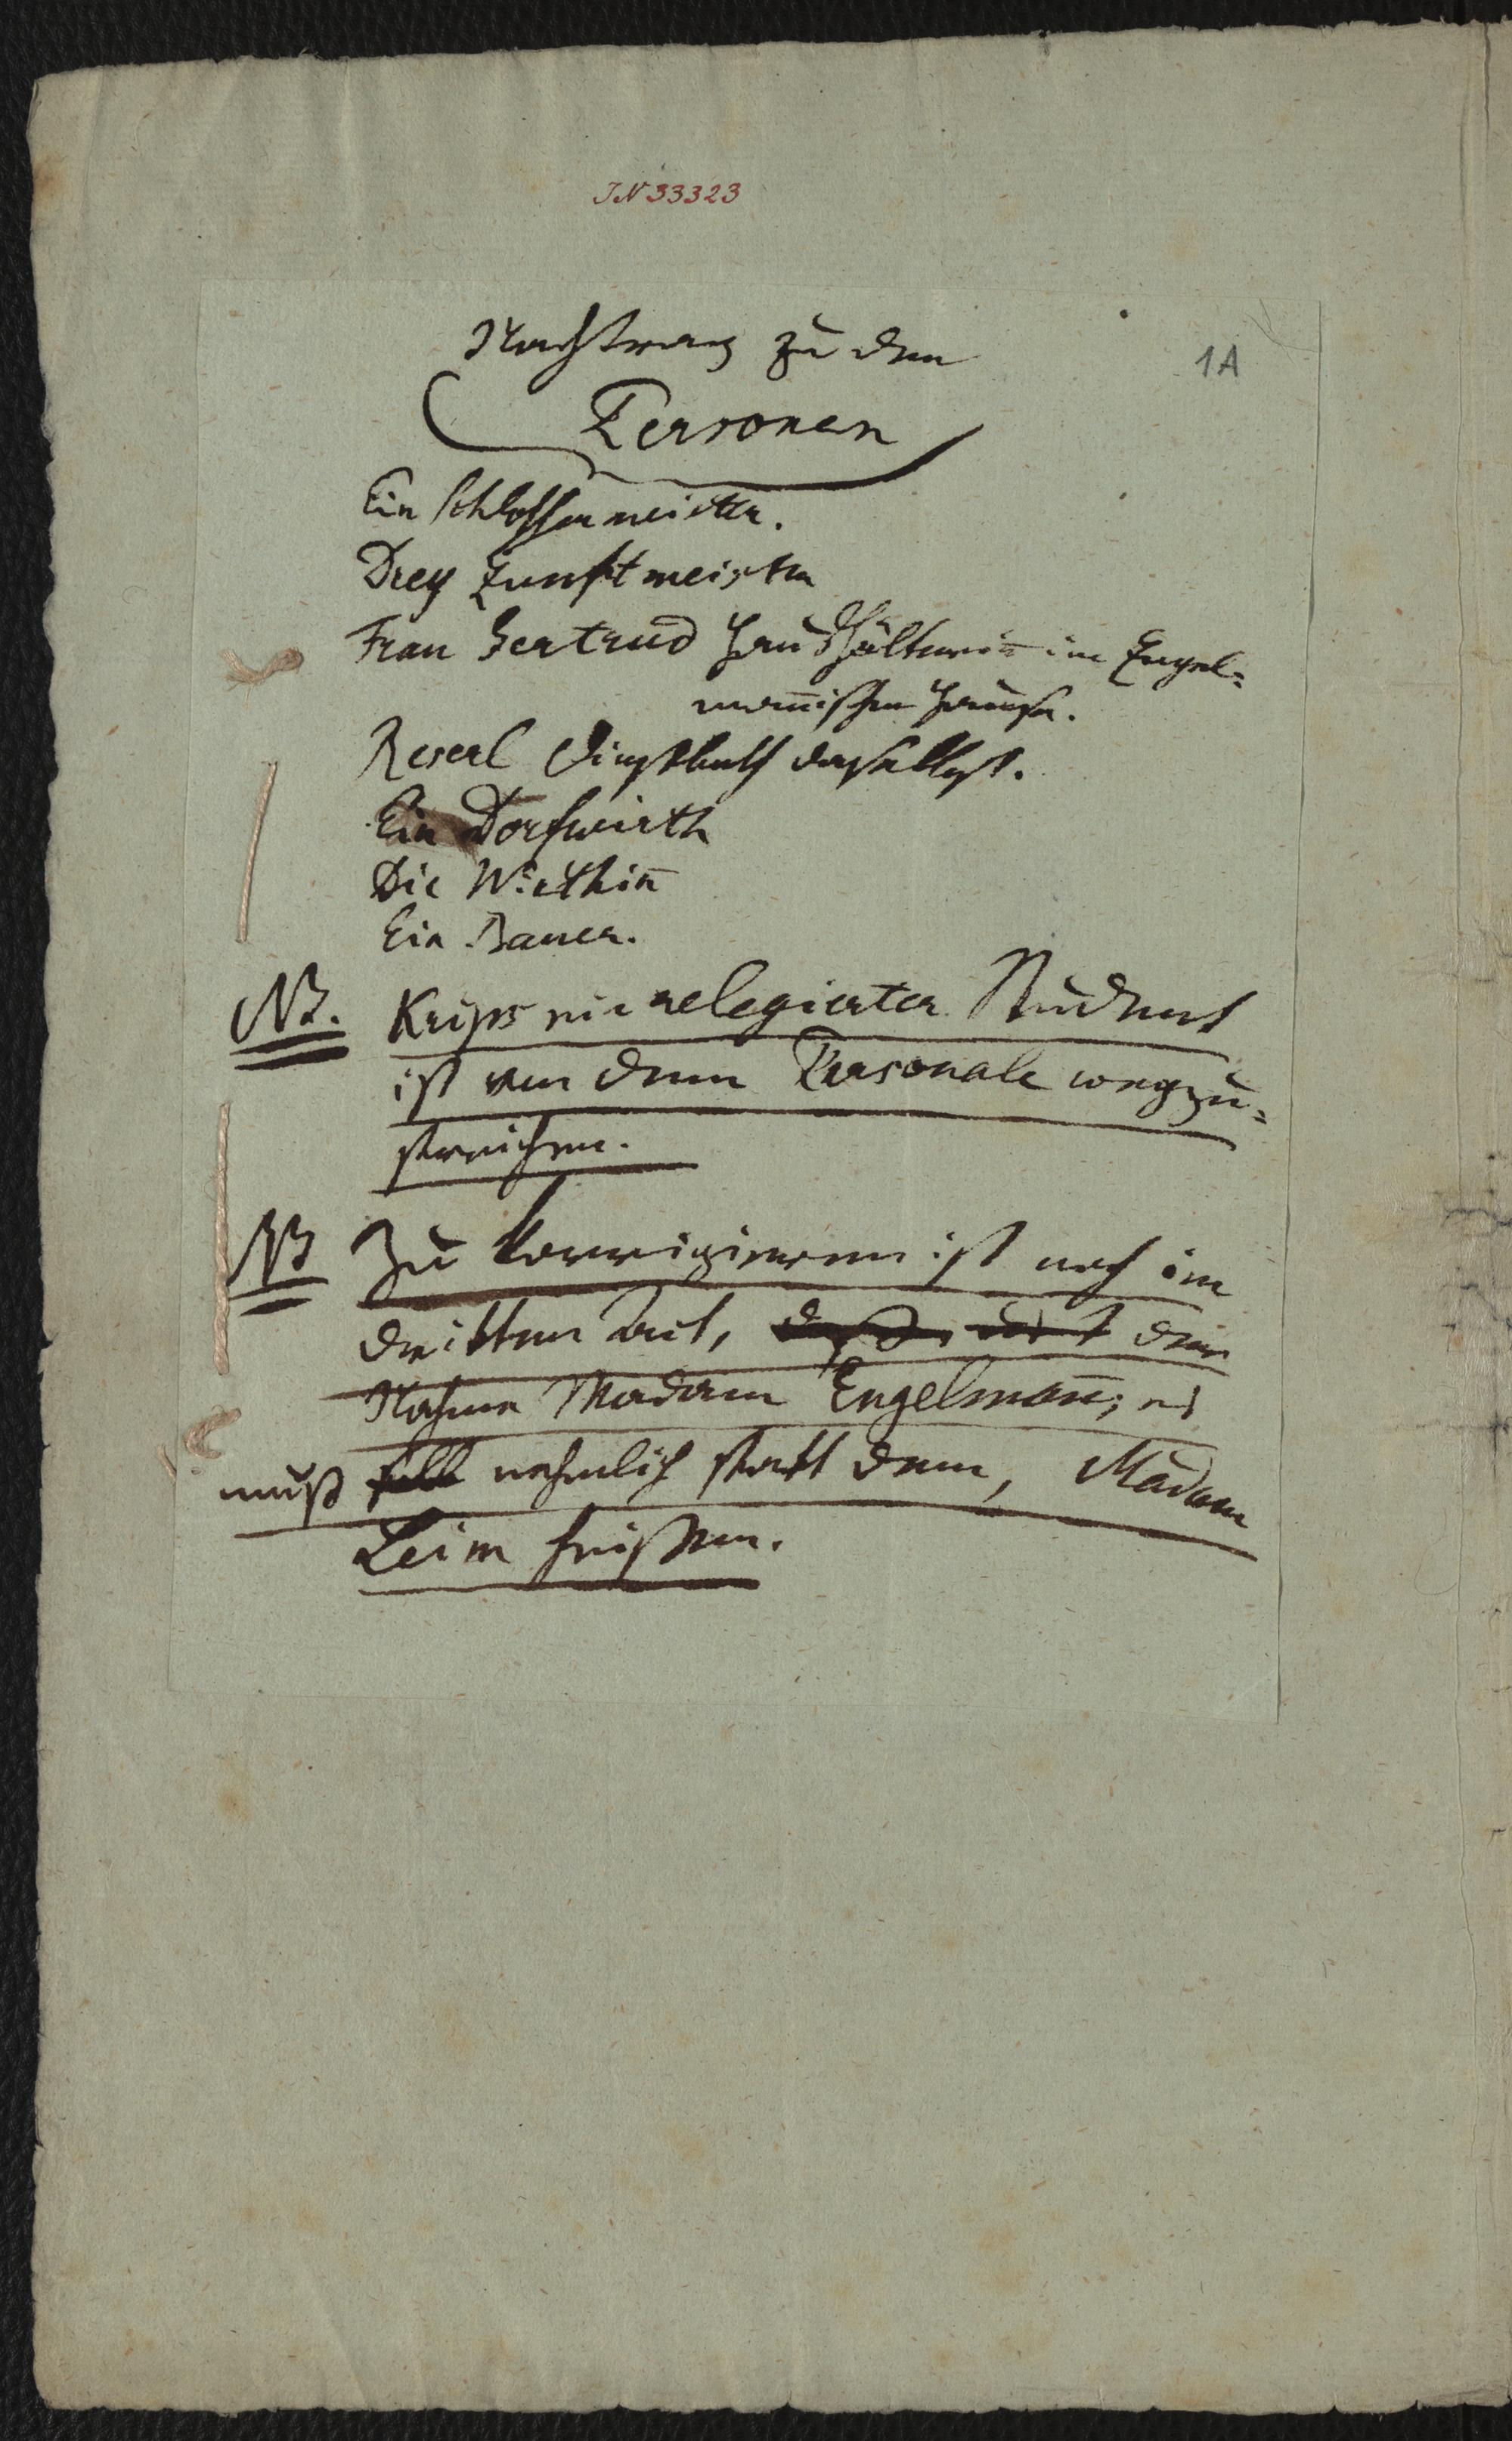 IN 33323
1A
Nachtrag zu den
Personen
Ein Schlossermeister.
Drey Zunftmeister
Frau Gertrud Haushälterin̄ im Engel=
man̄ischen Hause.
Reserl Dienstboth daselbst.
Ein Dorfwirth
Die Wirthin̄
Ein Bauer.
NB. Krips ein relegierter Student
ist von dem Personale wegzu=
streichen.
NB Zu korrigieren ist noch im
dritten Act, der
Nahme Madam Engelman̄; es
muß soll nehmlich statt dem, Madam
Leim heißen.